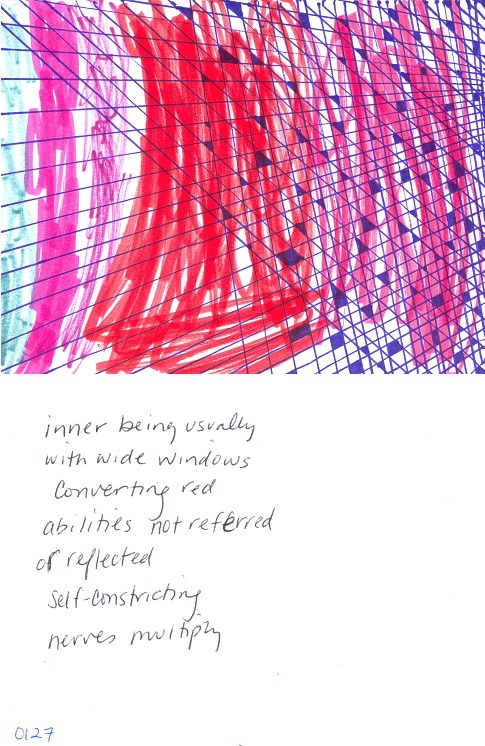 inner being usually
with wide windows
Converting red
abilities not referred
or reflected
self-constricting
nerves multiply
0127